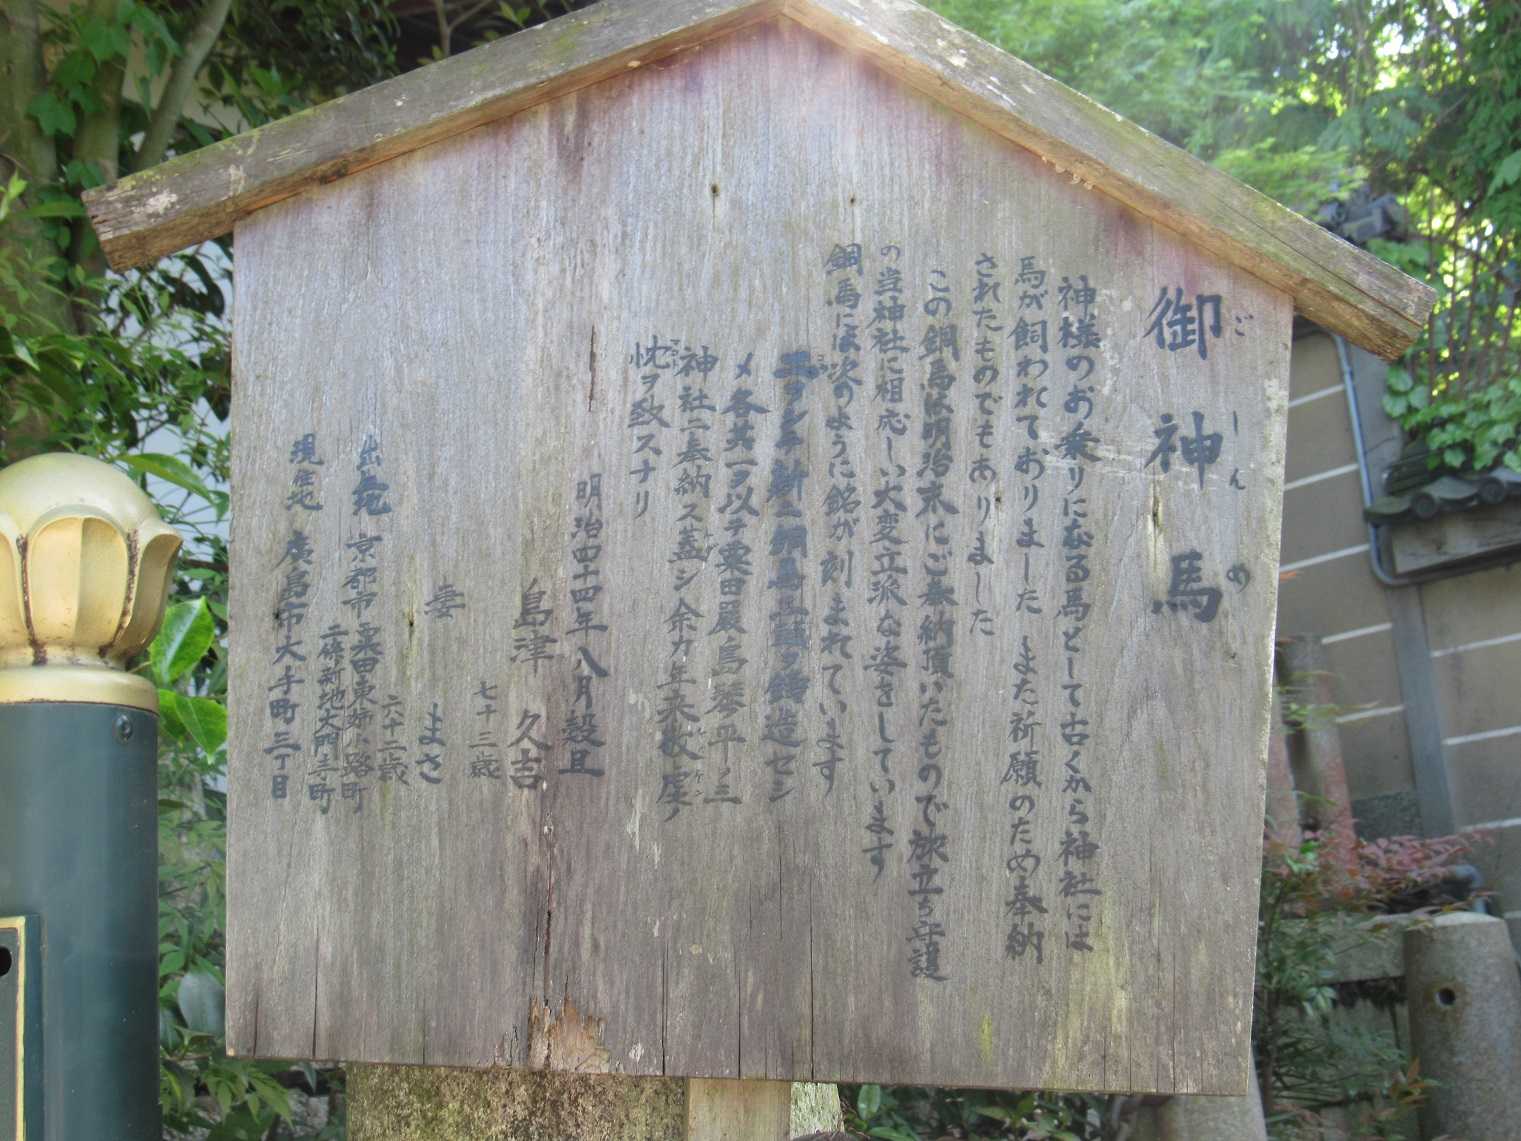 御神馬
ごしんめ
神様のお乗りになる馬として古くから神社には
馬が飼われておりました また祈願のため奉納
されたものでもありました
この銅馬は明治末にご奉納頂いたもので旅立ち守護
の当神社に相応しい大変立派な姿をしています
銅馬には次のように銘が刻まれています
工ヲシテ新ニ銅馬二頭ヲ鋳造セシ
メ各其一ヲ以テ粟田嚴島琴平ノ三
神社ニ奉納ス蓋シ余カ年来敬虔ノ
忱ヲ致スナリ
明治四十四年八月穀旦
島津久吉
七十三歳
妻 まさ
六十二歳
出生地 京都市粟田東姉小路町
二條新地大門寺町
現住地 廣島市大手町三丁目